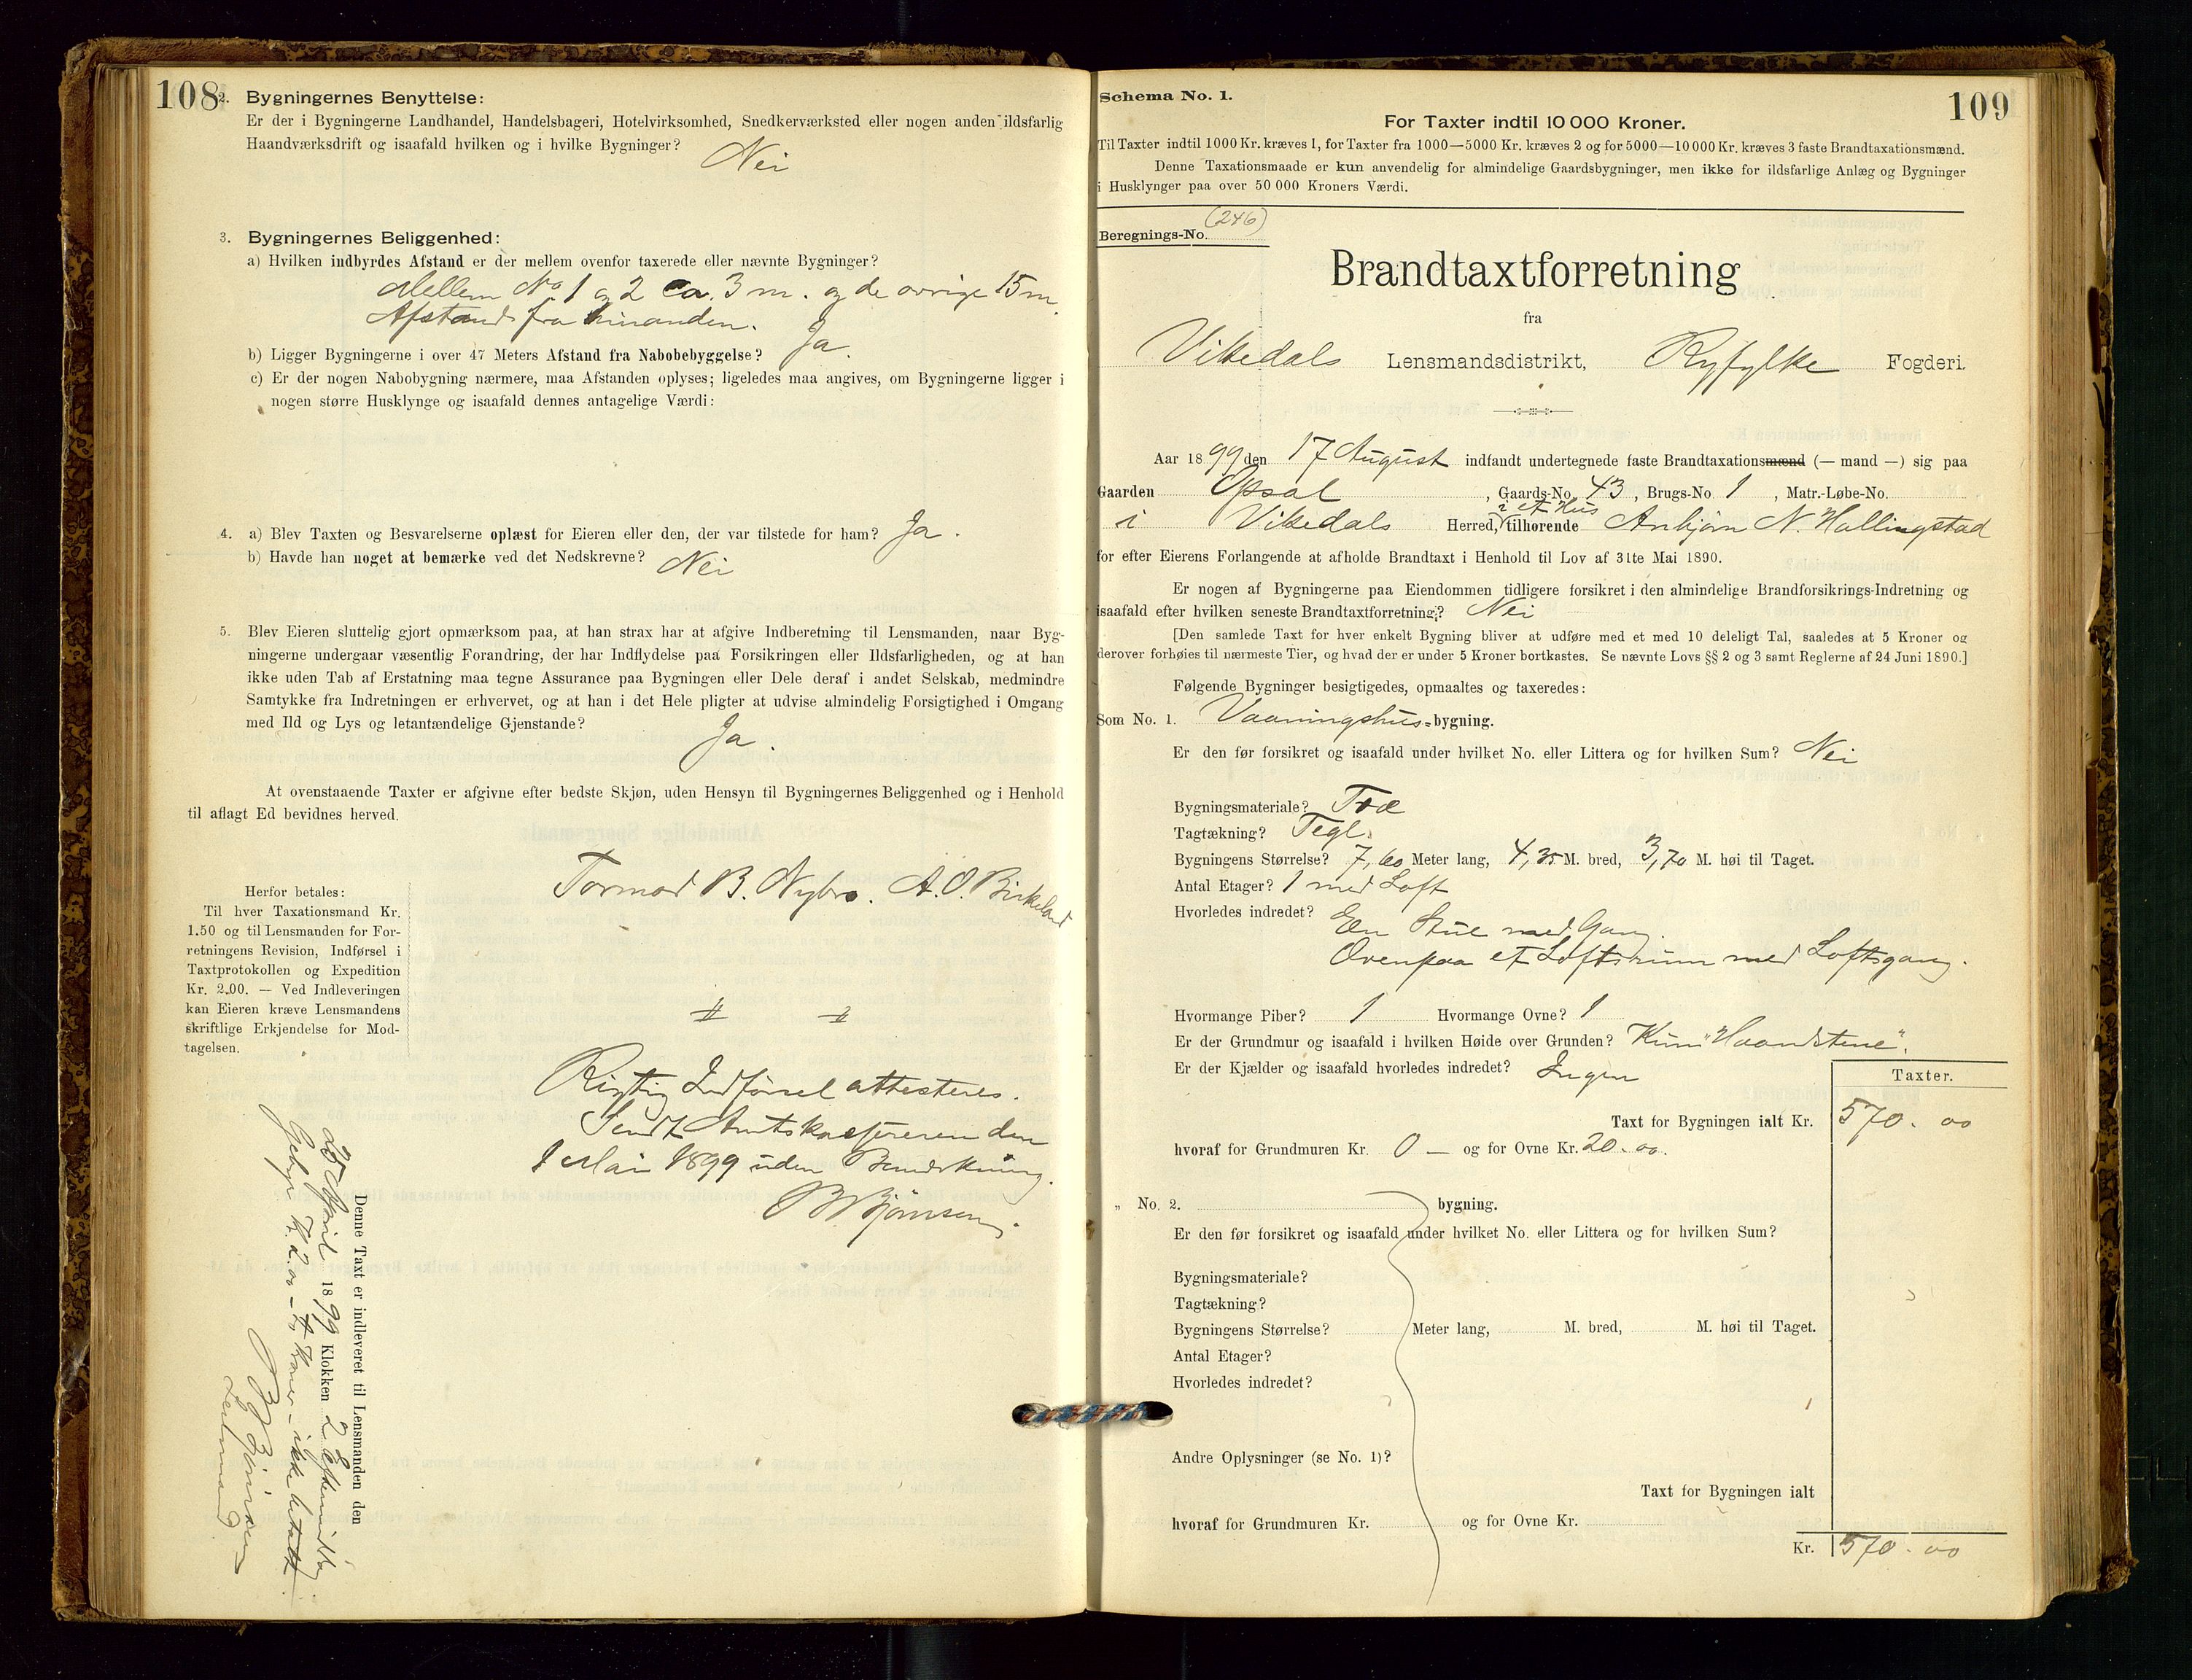 108
2. Bygningernes Benyttelse:
Er der i Bygningerne Landhandel, Handelsbageri, Hotelvirksomhed, Snedkerværksted eller nogen anden ildsfarlig
Haandværksdrift og isaafald hvilken og i hvilke Bygninger? Nei
3. Bygningernes Beliggenhed:
a) Hvilken indbyrdes Afstand er der mellem ovenfor taxerede eller nævnte Bygninger?
Mellem No 1 og 2 ca. 3 m. og de øvrige 15 m.
Afstand fra hinanden.
b) Ligger Bygningerne i over 47 Meters Afstand fra Nabobebyggelse? Ja.
c) Er der nogen Nabobygning nærmere, maa Afstanden oplyses; ligeledes maa angives, om Bygningerne ligger i
nogen større Husklynge og isaafald dennes antagelige Værdi:
4. a) Blev Taxten og Besvarelserne oplæst for Eieren eller den, der var tilstede for ham? Ja.
b) Havde han noget at bemærke ved det Nedskrevne? Nei
5. Blev Eieren sluttelig gjort opmærksom paa, at han strax har at afgive Indberetning til Lensmanden, naar Byg-
ningerne undergaar væsentlig Forandring, der har Indflydelse paa Forsikringen eller Ildsfarligheden, og at han
ikke uden Tab af Erstatning maa tegne Assurance paa Bygningen eller Dele deraf i andet Selskab, medmindre
Samtykke fra Indretningen er erhvervet, og at han i det Hele pligter at udvise almindelig Forsigtighed i Omgang
med Ild og Lys og letantændelige Gjenstande? Ja.
At ovenstaaende Taxter er afgivne efter bedste Skjøn, uden Hensyn til Bygningernes Beliggenhed og i Henhold
til aflagt Ed bevidnes herved.
Tormod B. Nybro. A. O. Birkeland
Herfor betales:
Til hver Taxationsmand Kr.
1.50 og til Lensmanden for For-
retningens Revision, Indførsel i
Taxtprotokollen og Expedition
Kr. 2.00. — Ved Indleveringen
kan Eieren kræve Lensmandens
skriftlige Erkjendelse for Mod-
tagelsen.
Rigtig Indførsel attesteres.
Sendt Amtskassereren den
1 Mai 1899 uden Bemerkning.
B Bjørnsen.
Denne Taxt er indleveret til Lensmanden den
25 April 1899 Klokken 2 Eftermiddag
Gebyr Kr. 2.00 - to Kroner - ikke betalt.
B Bjørnsen
Lensmand.
109
Schema No. 1.
For Taxter indtil 10 000 Kroner.
Til Taxter indtil 1000 Kr. kræves 1, for Taxter fra 1000—5000 Kr. kræves 2 og for 5000—10 000 Kr. kræves 3 faste Brandtaxationsmænd.
Denne Taxationsmaade er kun anvendelig for almindelige Gaardsbygninger, men ikke for ildsfarlige Anlæg og Bygninger
i Husklynger paa over 50 000 Kroners Værdi.
Beregnings-No. (246)
Brandtaxtforretning
fra
Vikedals Lensmandsdistrikt, Ryfylke Fogderi.
Aar 1899 den 17 August indfandt undertegnede faste Brandtaxationsmænd (— mand —) sig paa
Gaarden Opsal, Gaards-No. 43, Brugs-No 1, Matr.-Løbe-No.
i Vikedals Herred, i et Hus tilhørende Anbjørn N. Hallingstad
for efter Eierens Forlangende at afholde Brandtaxt i Henhold til Lov af 31te Mai 1890.
Er nogen af Bygningerne paa Eiendommen tidligere forsikret i den almindelige Brandforsikrings-Indretning og
isaafald efter hvilken seneste Brandtaxtforretning? Nei
[Den samlede Taxt for hver enkelt Bygning bliver at udføre med et med 10 deleligt Tal, saaledes at 5 Kroner og
derover forhøies til nærmeste Tier, og hvad der er under 5 Kroner bortkastes. Se nævnte Lovs §§ 2 og 3 samt Reglerne af 24 Juni 1890.]
Følgende Bygninger besigtigedes, opmaaltes og taxeredes:
Som No. 1. Vaaningshus-bygning.
Er den før forsikret og isaafald under hvilket No. eller Littera og for hvilken Sum? Nei
Bygningsmateriale? Træ
Tagtækning? Tegl.
Bygningens Størrelse? 7,60 Meter lang, 4,35 M. bred, 3,70 M. høi til Taget.
Antal Etager? 1 med Loft
Hvorledes indredet? En Stue med Gang.
Ovenpaa et Loftsrum med Loftsgang.
Hvormange Piber? 1 Hvormange Ovne? 1
Er der Grundmur og isaafald i hvilken Høide over Grunden? Kun "Haandstene".
Er der Kjælder og isaafald hvorledes indredet? Ingen
Taxter.
Taxt for Bygningen ialt Kr. 570. 00
hvoraf for Grundmuren Kr. 0 — og for Ovne Kr. 20.00.
„ No. 2. bygning.
Er den før forsikret og isaafald under hvilket No. eller Littera og for hvilken Sum?
Bygningsmateriale?
Tagtækning?
Bygningens Størrelse? Meter lang, M. bred, M. høi til Taget.
Antal Etager?
Hvorledes indredet?
Andre Oplysninger (se No. 1)?
Taxt for Bygningen ialt
hvoraf for Grundmuren Kr. og for Ovne Kr.
Kr. 570. 00